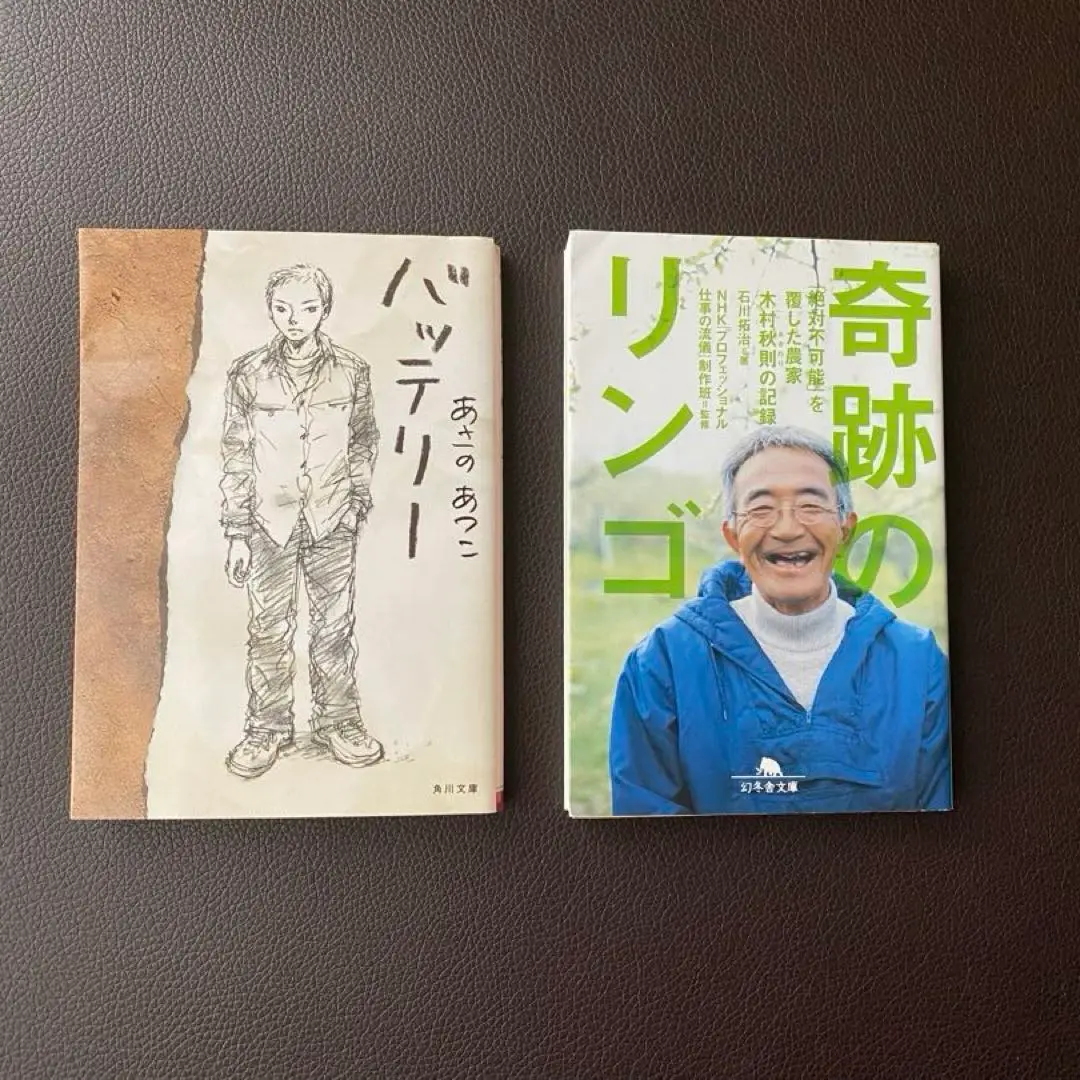 バッテリー
あさのあつこ
角川文庫
奇跡の
リンゴ
「絶対不可能」を
覆した農家
木村秋則の記録
石川拓治=著
NHK「プロフェッショナル
仕事の流儀」制作班=監修
幻冬舎文庫